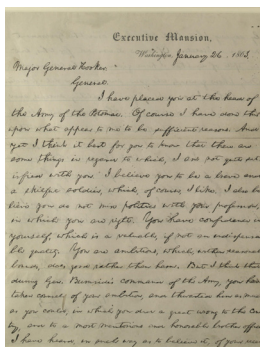 Executive Mansion,
Washington, January 26, 1863.
Major General Hooker:
General.
I have placed you at the head of
the Army of the Potomac. Of course I have done this
upon what appear to me to be sufficient reasons. And
yet I think it best for you to know that there are
some things in regard to which, I am not quite sat-
isfied with you. I believe you to be a brave and
a skilful soldier, which, of course, I like. I also be-
lieve you do not mix politics with your profession,
in which you are right. You have confidence in
yourself, which is a valuable, if not an indispensa-
ble quality. You are ambitious, which, within reasonable
bounds, does good rather than harm. But I think that
during Gen. Burnside's command of the Army, you have
taken counsel of your ambition, and thwarted him as much
as you could, in which you did a great wrong to the coun-
try, and to a most meritorious and honorable brother officer.
I have heard, in such way as to believe it, of your